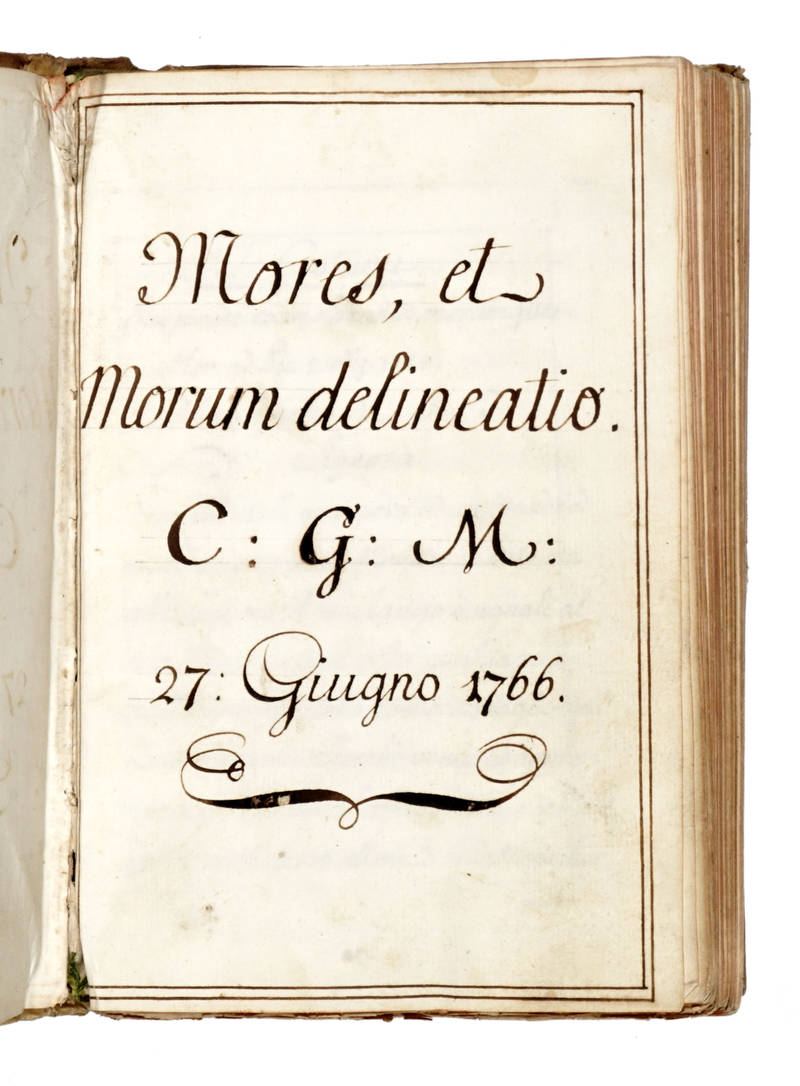 Mores, et
Morum delineatio.
C: G: M:
27: Giugno 1766.